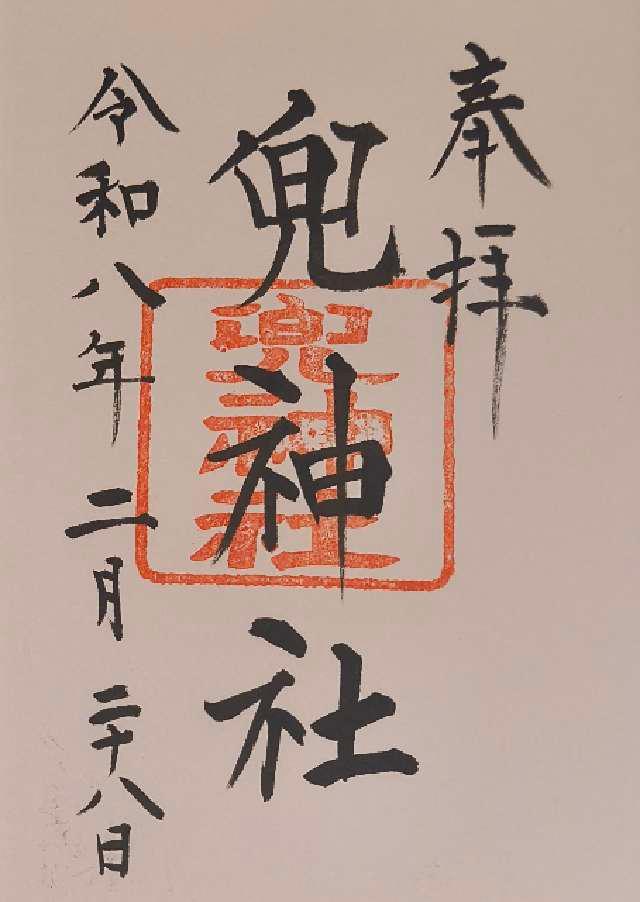 奉拝
兜神社
兜神社
令和八年二月二十八日